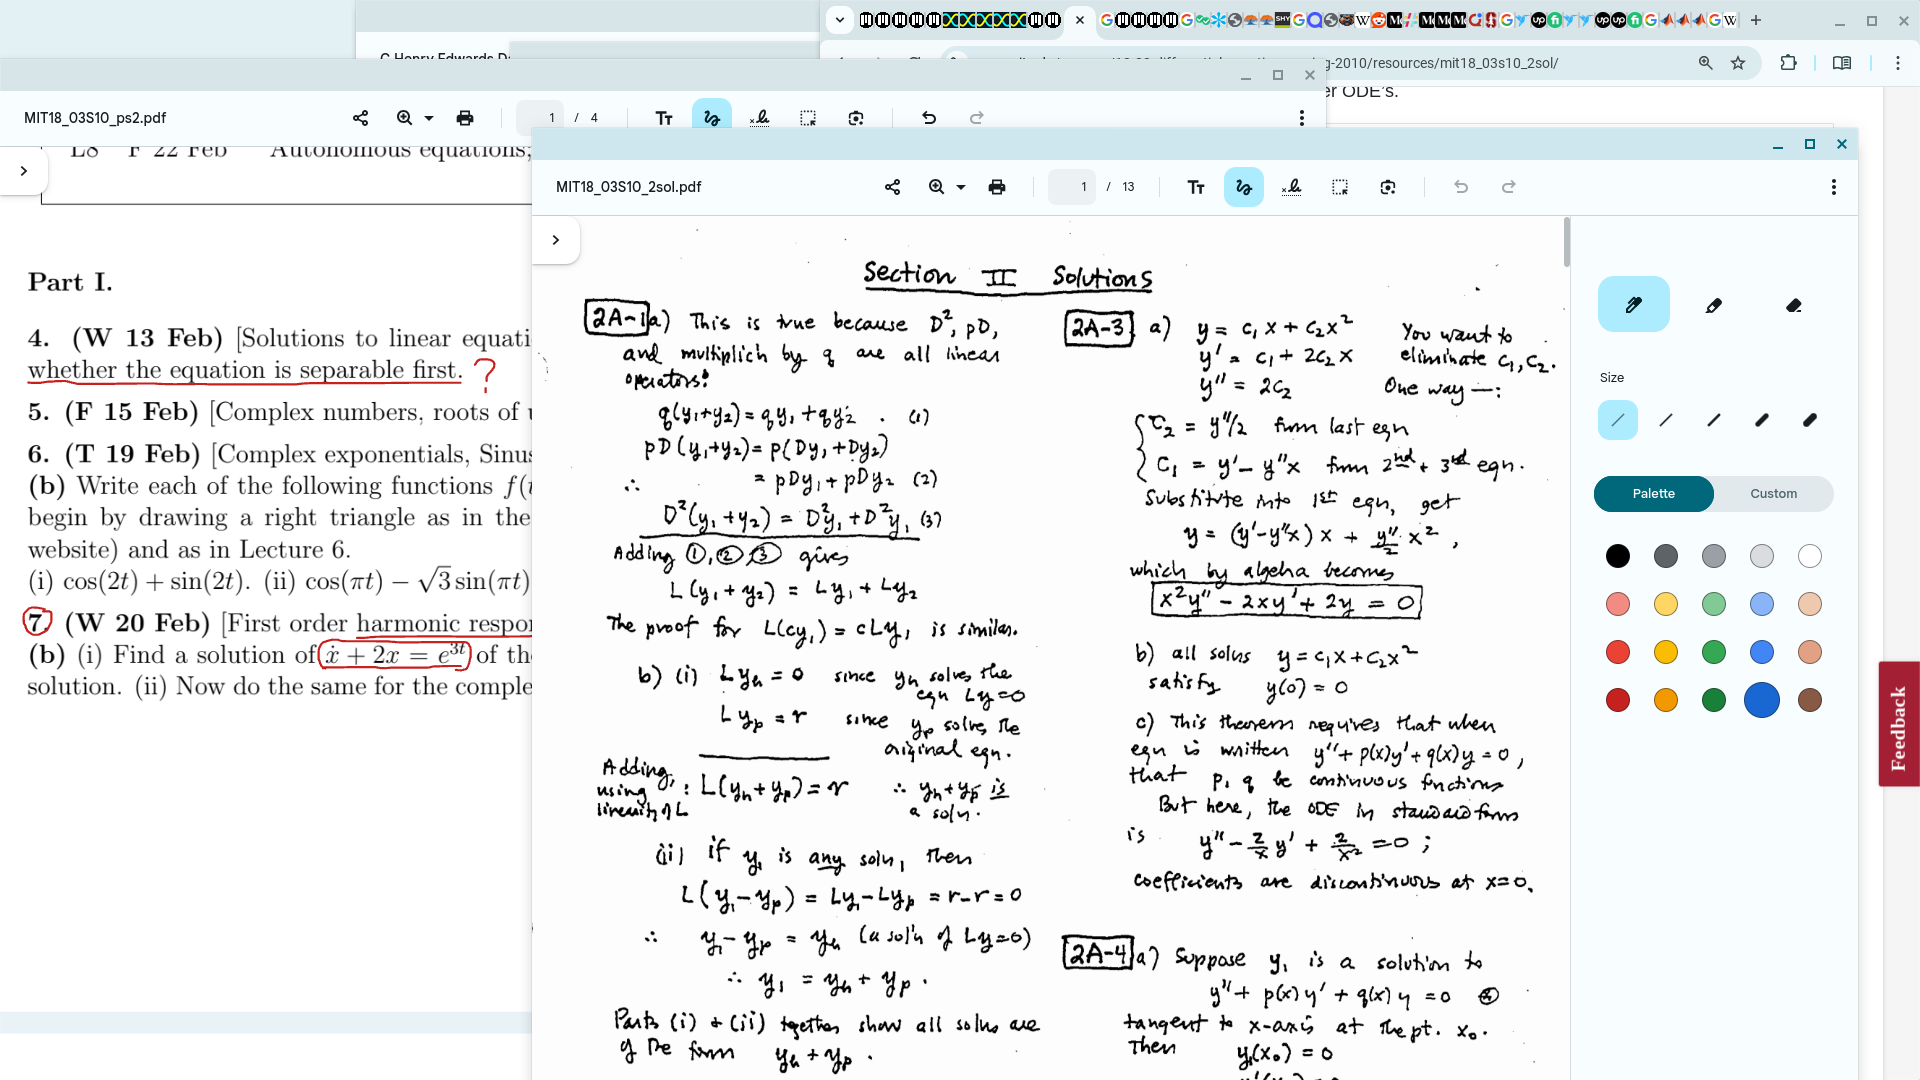 -2010/resources/mit18_03s10_2sol/
er ODE's.
MIT18_03S10_ps2.pdf
1 / 4
L8 F 22 Feb Autonomous equations;
Part I.
4. (W 13 Feb) [Solutions to linear equati
whether the equation is separable first. ?
5. (F 15 Feb) [Complex numbers, roots of u
6. (T 19 Feb) [Complex exponentials, Sinus
(b) Write each of the following functions f(
begin by drawing a right triangle as in the
website) and as in Lecture 6.
(i) cos(2t) + sin(2t). (ii) cos(πt) − √3 sin(πt)
7. (W 20 Feb) [First order harmonic respon
(b) (i) Find a solution of ẋ + 2x = e^{3t} of th
solution. (ii) Now do the same for the comple
MIT18_03S10_2sol.pdf
1 / 13
Section II Solutions
2A-1 a) This is true because D², pD,
and multiplich by q are all linear
operators:
q(y₁+y₂) = qy₁ + qy₂ . (1)
pD(y₁+y₂) = p(Dy₁+Dy₂)
∴ = pDy₁ + pDy₂ (2)
D²(y₁+y₂) = D²y₁ + D²y₁ (3)
Adding ①, ② ③ gives
L(y₁+y₂) = Ly₁ + Ly₂
The proof for L(cy₁) = cLy₁ is similar.
b) (i) Lyₕ = 0 since yₕ solves the
eqn Ly=0
Lyₚ = r since yₚ solves the
original eqn.
Adding,
using : L(yₕ+yₚ) = r ∴ yₕ+yₚ is
linearity of L a soln.
(ii) if y₁ is any soln, then
L(y₁−yₚ) = Ly₁−Lyₚ = r−r = 0
∴ y₁−yₚ = yₕ (a sol'n of Ly=0)
∴ y₁ = yₕ + yₚ .
Parts (i) + (ii) together show all solns are
of the form yₕ + yₚ .
2A-3 a) y = c₁x + c₂x² You want to
y' = c₁ + 2c₂x eliminate c₁, c₂.
y'' = 2c₂ One way —:
c₂ = y''/2 from last eqn
c₁ = y' − y''x from 2nd + 3rd eqn.
Substitute into 1st eqn, get
y = (y'−y''x) x + y''/2 x² ,
which by algebra becomes
x²y'' − 2xy' + 2y = 0
b) all solns y = c₁x + c₂x²
satisfy y(0) = 0
c) This theorem requires that when
eqn is written y'' + p(x)y' + q(x)y = 0 ,
that p, q be continuous functions
But here, the ODE in standard form
is y'' − 2/x y' + 2/x² = 0 ;
coefficients are discontinuous at x=0.
2A-4 a) Suppose y₁ is a solution to
y'' + p(x)y' + q(x)y = 0 ⊛
tangent to x-axis at the pt. x₀.
Then y₁(x₀) = 0
Size
Palette Custom
Feedback